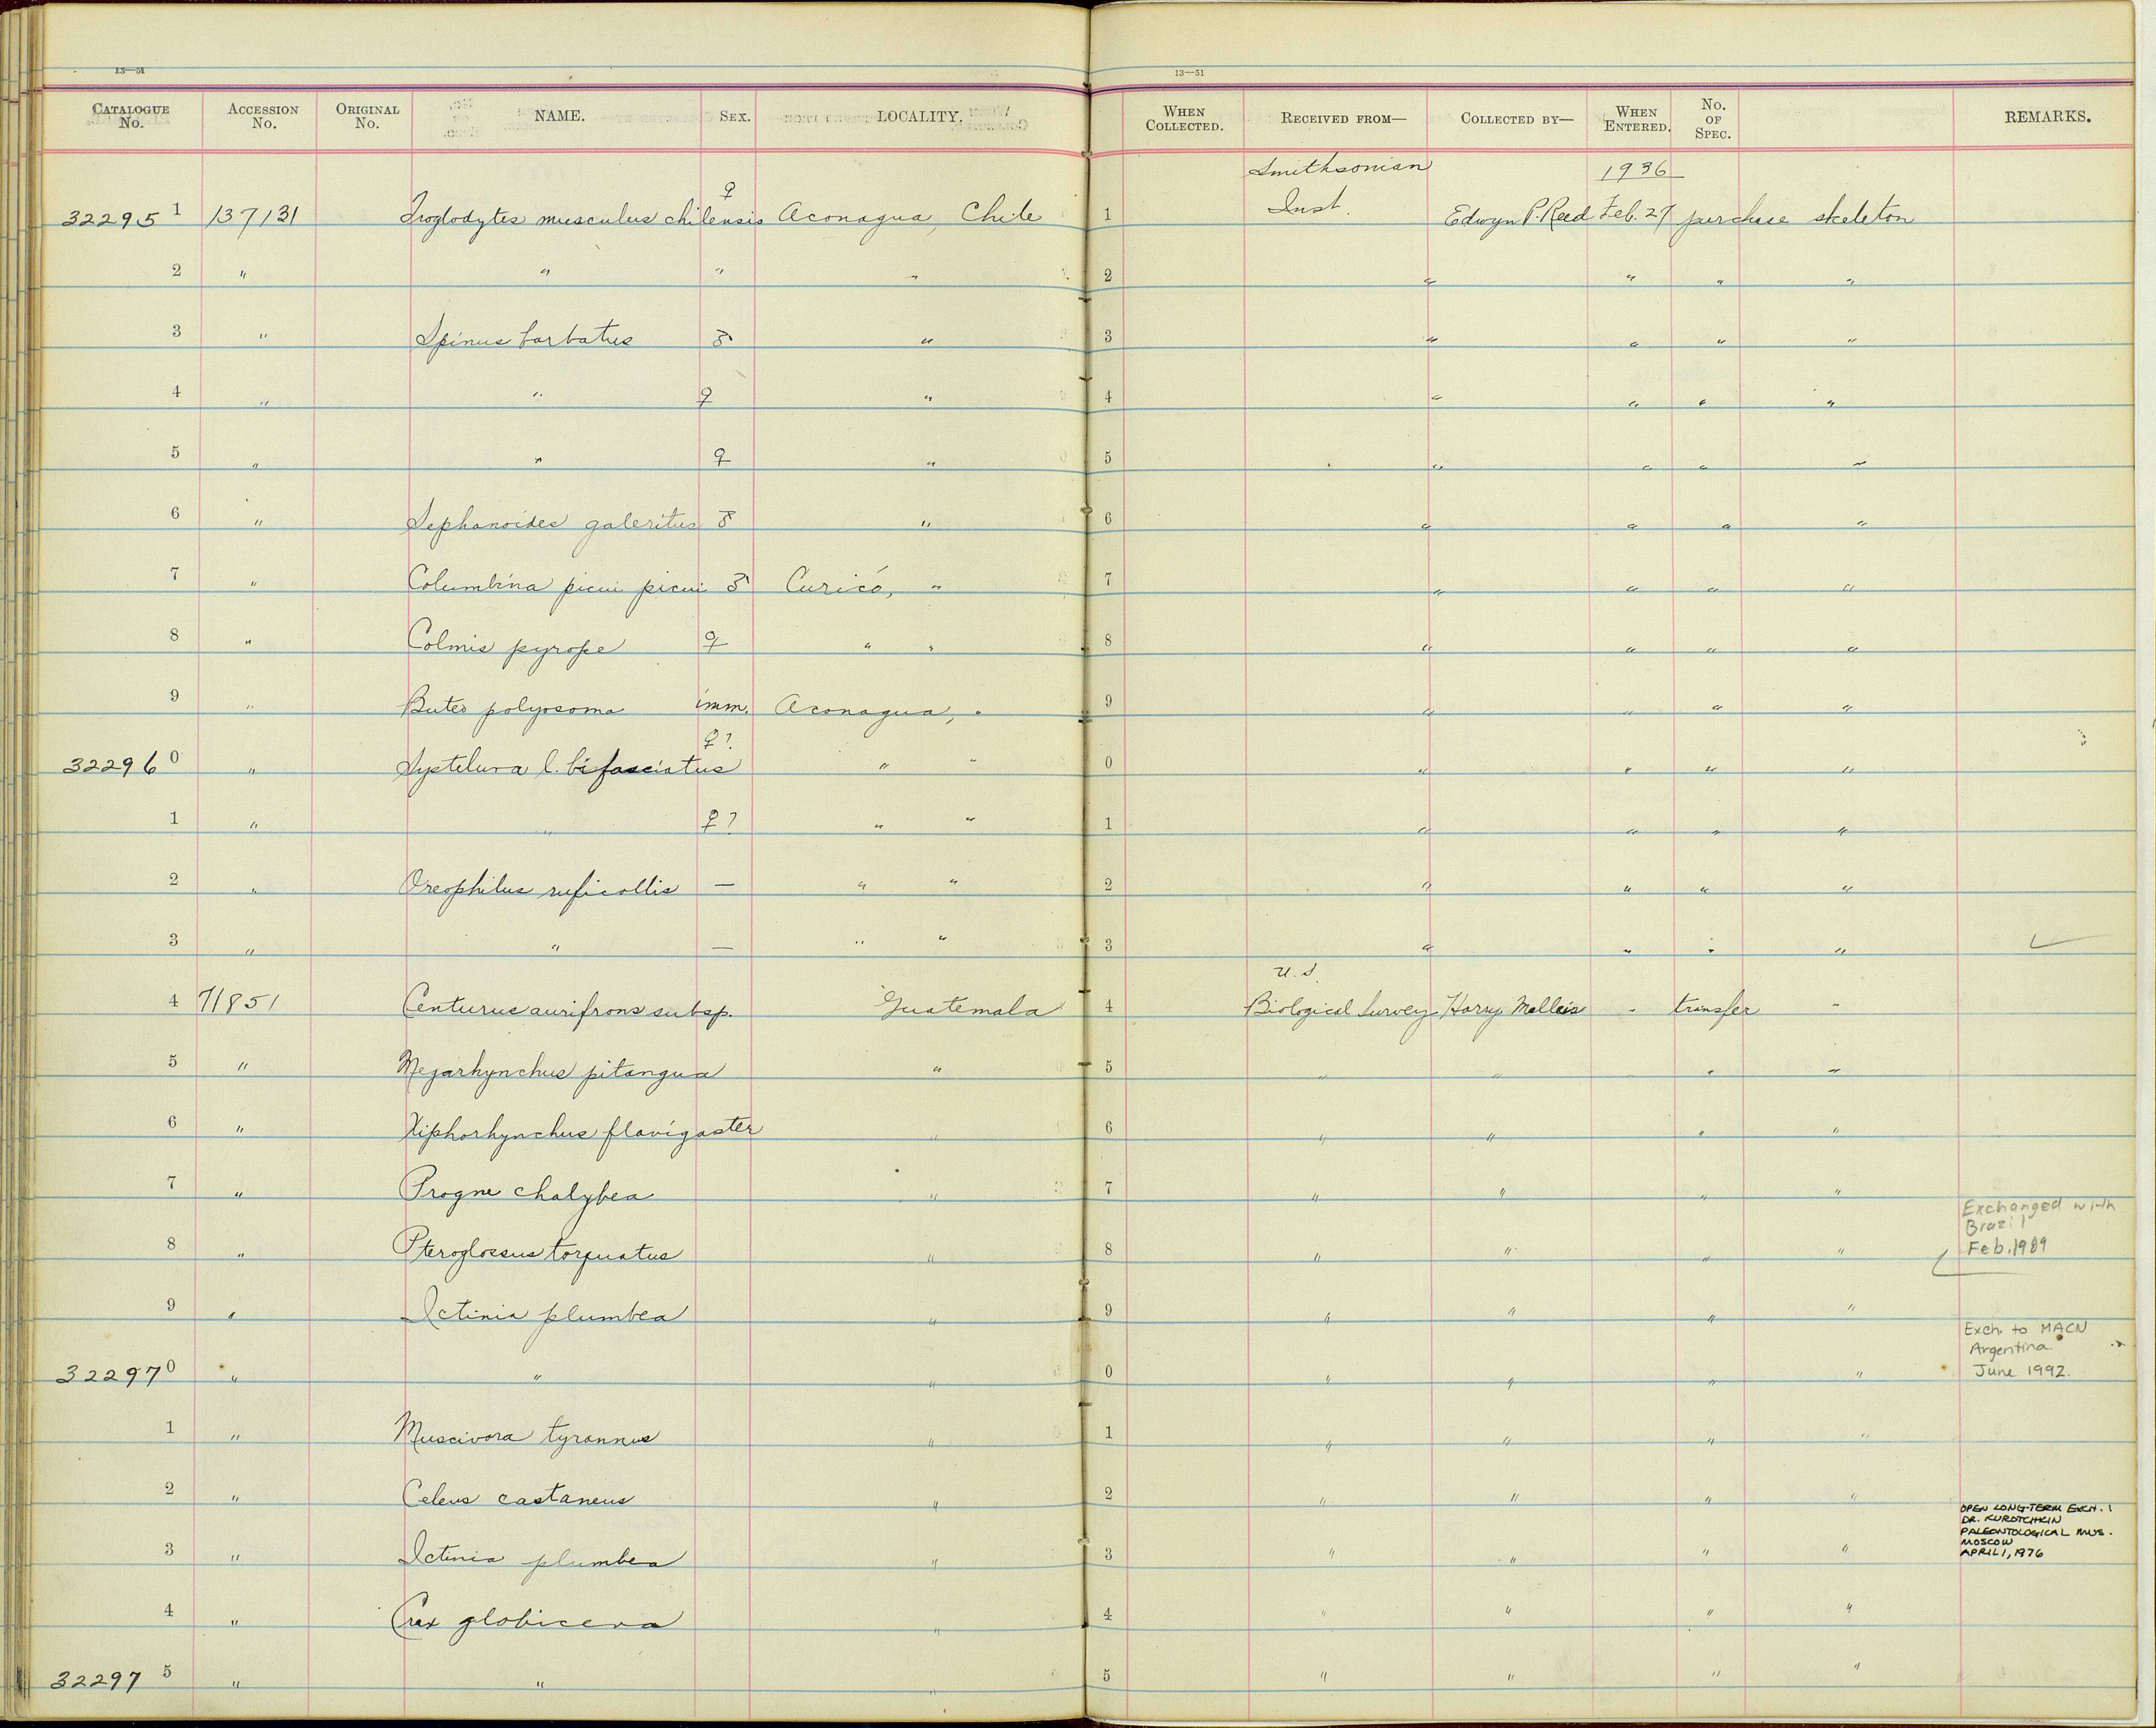 13—51 13—51
CATALOGUE No. ACCESSION No. ORIGINAL No. NAME. SEX. LOCALITY. WHEN COLLECTED. RECEIVED FROM— COLLECTED BY— WHEN ENTERED. No. OF SPEC. REMARKS.
Smithsonian 1936
322951 137131 Troglodytes musculus chilensis ♀ Aconagua, Chile 1 Inst. Edwyn P. Reed Feb. 27 purchase skeleton
2 " " " " 2 " " " "
3 " Spinus barbatus ♂ " 3 " " " "
4 " " ♀ " 4 " " " "
5 " " ♀ " 5 " " " "
6 " Sephanoides galeritus ♂ " 6 " " " "
7 " Columbina picui picui ♂ Curicó, " 7 " " " "
8 " Colmis pyrope ♀ " " 8 " " " "
9 " Buteo polyosoma imm. Aconagua, " 9 " " " "
322960 " Systelura l. bifasciatus ♀? " " 0 " " " "
1 " " ♀? " " 1 " " " "
2 " Oreophilus ruficollis — " " 2 " " " "
3 " " — " " 3 " " " " ✓
U. S.
4 71851 Centurus aurifrons subsp. Guatemala 4 Biological Survey Harry Malleis " transfer "
5 " Megarhynchus pitangua " 5 " " " "
6 " Xiphorhynchus flavigaster " 6 " " " "
7 " Progne chalybea " 7 " " " "
Exchanged with
Brazil
8 " Pteroglossus torquatus " 8 " " " " Feb. 1989
9 " Ictinia plumbea " 9 " " " "
Exch. to MACN
Argentina
322970 " " " 0 " " " " June 1992.
1 " Muscivora tyrannus " 1 " " " "
2 " Celeus castaneus " 2 " " " "
OPEN LONG-TERM EXCH.!
DR. KUROTCHKIN
PALEONTOLOGICAL MUS.
MOSCOW
3 " Ictinia plumbea " 3 " " " " APRIL 1, 1976
4 " Crax globicera " 4 " " " "
322975 " " " 5 " " " "